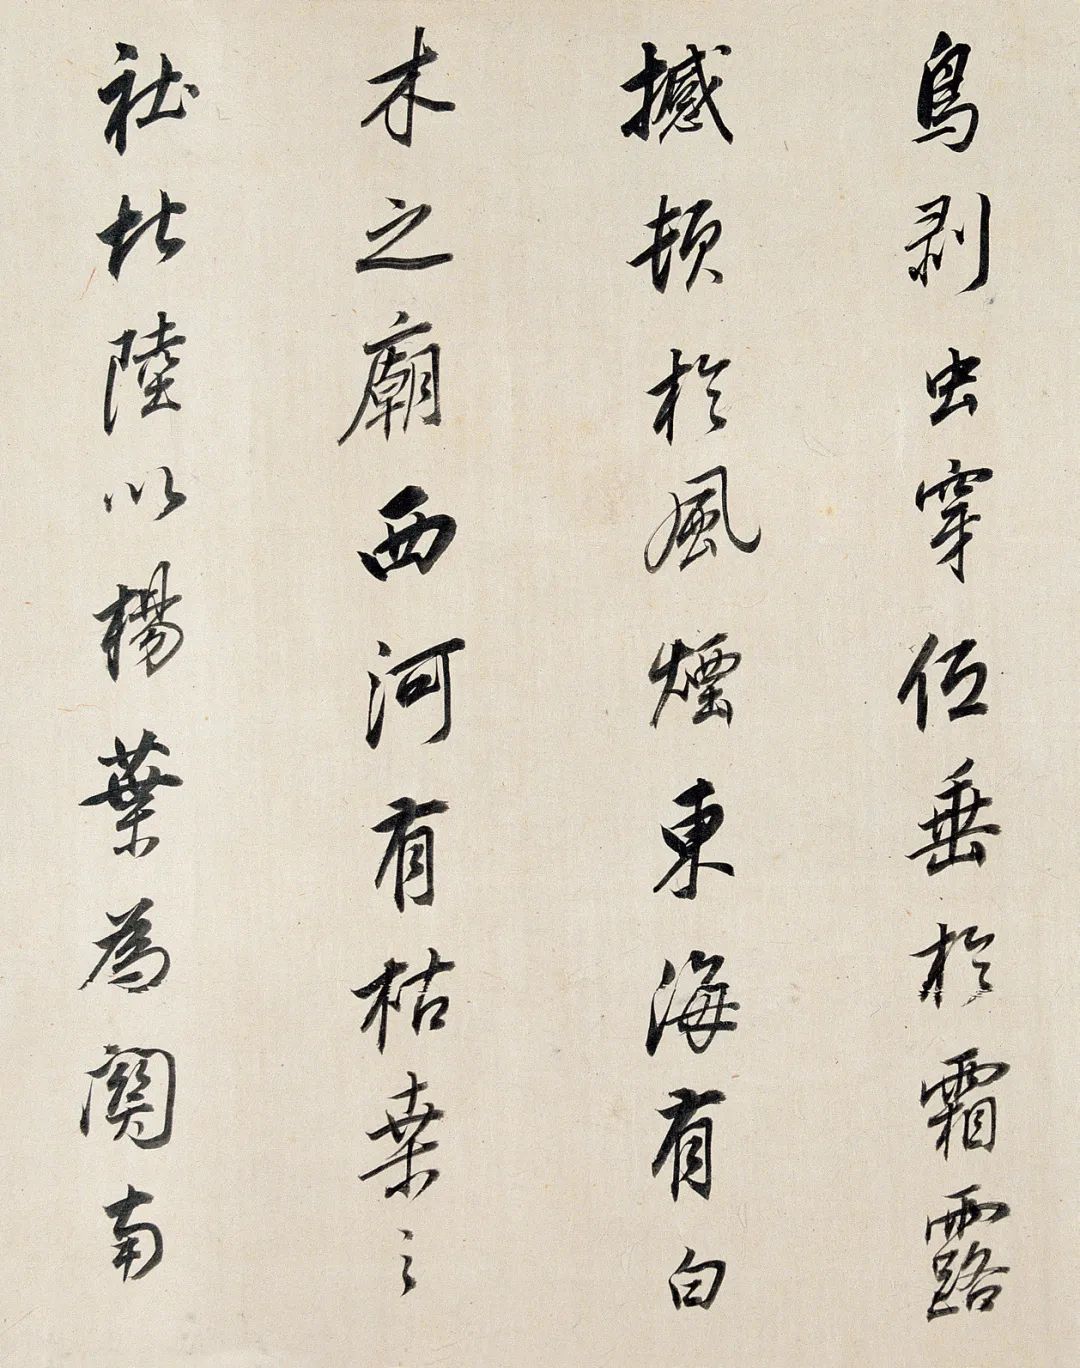 鳥剥虫穿低垂於霜露
撼頓於風煙東海有白
木之廟西河有枯桒之
社北陸以楊葉為關南